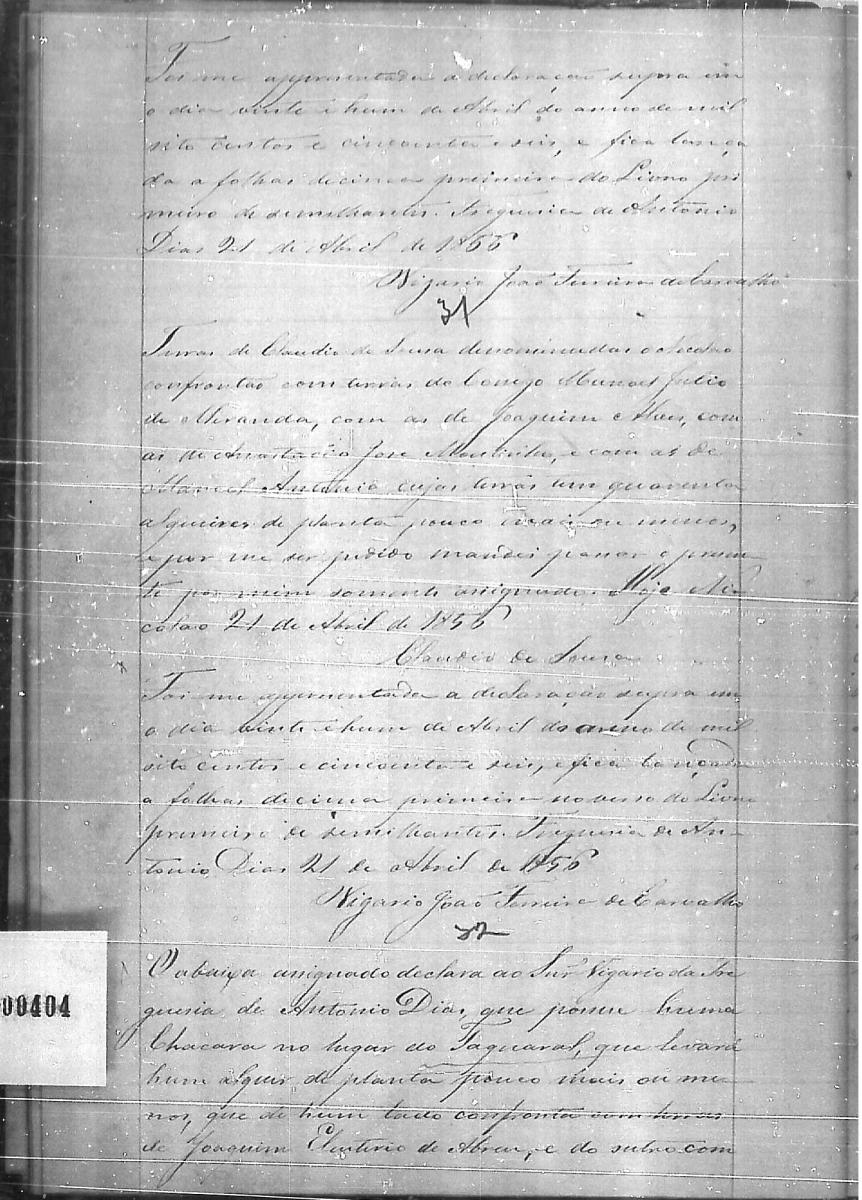 Foi me appresentada a declaração supra em
o dia vinte e hum de Abril do anno de mil
oito centos e cincoenta e seis, e fica lança
da a folhas decima primeira do Livro pri
meiro de semilhantes. Freguesia de Antonio
Dias 21 de Abril de 1856
Vigario João Ferreira de Carvalho
31
Terras de Claudio de Sousa denominadas
confrontão com terras do Conego Manoel Julio
de Miranda, com as de Joaquim Alves, com
as de Anastacio José, e com as de
Manoel Antonio cujas terras tem quarenta
alqueires de planta pouco mais ou menos,
e por me ser pedido mandei passar o presen
te por mim somente assignado. Hoje Ni
colao 21 de Abril de 1856
Claudio de Sousa
Foi me appresentada a declaração supra em
o dia vinte e hum de Abril do anno de mil
oito centos e cincoenta e seis, e fica lançada
a folhas decima primeira no verso do Livro
primeiro de semilhantes. Freguesia de An-
tonio Dias 21 de Abril de 1856
Vigario João Ferreira de Carvalho
32
O abaixo assignado declara ao Snr Vigario da Fre
guesia de Antonio Dias, que possue huma
Chacara no lugar do Taquaral, que levará
hum alqueir de planta pouco mais ou me-
nos, que de hum lado confronta com terras
de Joaquim Eleuterio de Abreu, e do outro com
00404